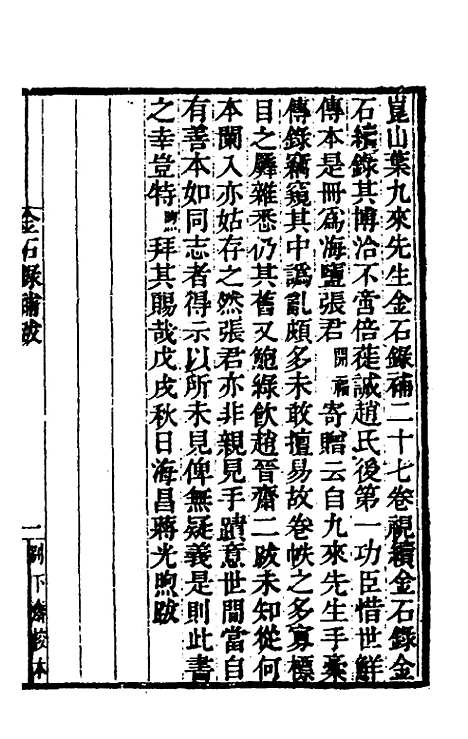 崑山葉九來先生金石錄補二十七卷視續金石錄金
石續錄其博洽不啻倍蓰誠趙氏後第一功臣惜世鮮
傳本是冊爲海鹽張君開福寄贈云自九來先生手稾
傳錄竊窺其中譌亂頗多未敢擅易故卷帙之多寡標
目之厖雜悉仍其舊又鮑綠飮趙晉齋二跋未知從何
本闌入亦姑存之然張君亦非親見手蹟意世間當自
有善本如同志者得示以所未見俾無疑義是則此書
之幸豈特煦拜其賜哉戊戌秋日海昌蔣光煦跋
金石錄補跋
一
別下齋校本